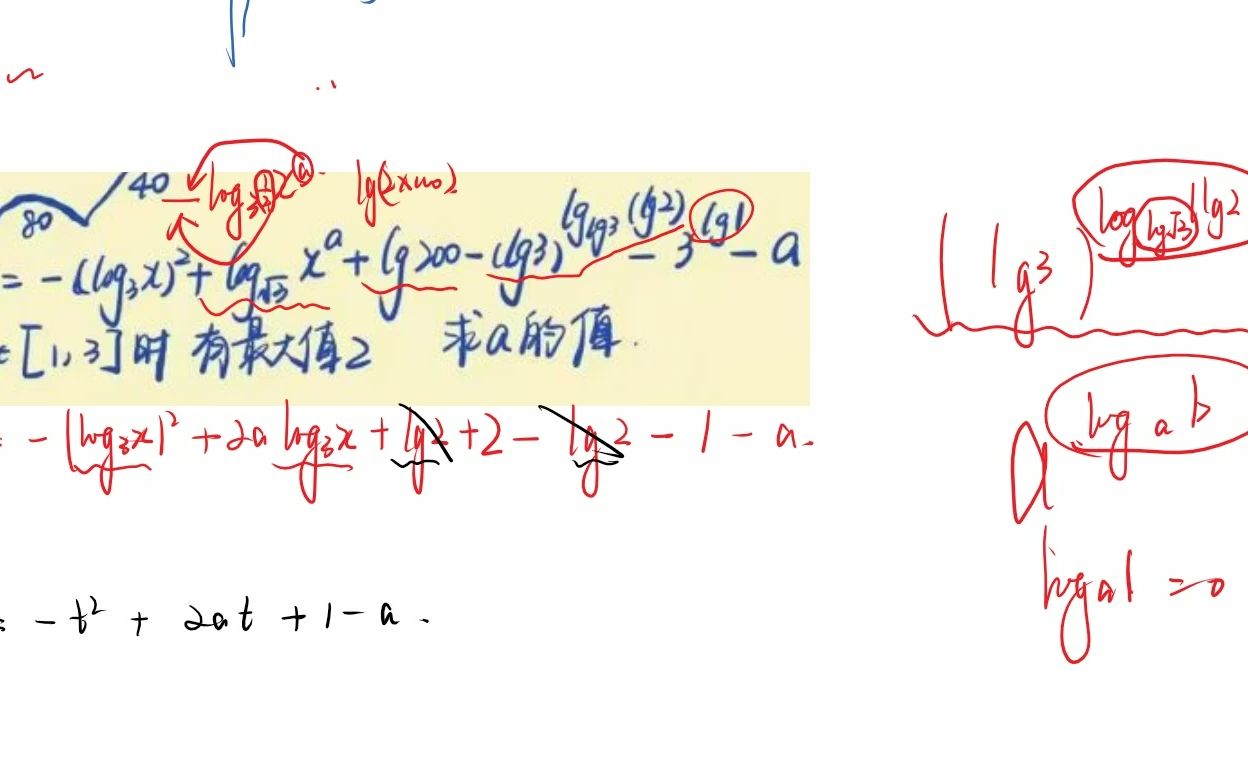 40 - log_{3^{1/2}} x^a lg(2×100)
80
= -(log₃x)² + log_{√3} x^a + lg200 - (lg3)^{log_{lg3}(lg2)} - 3^{lg1} - a
∈[1,3]时 有最大值2 求a的值.
= -(log₃x)² + 2a log₃x + lg2 + 2 - lg2 - 1 - a.
= -t² + 2at + 1 - a.
(lg3)
lg2
a^{log_a b}
log_a 1 = 0